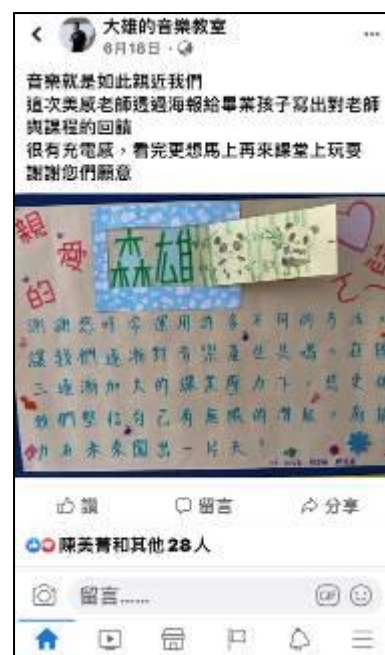 大雄的音樂教室
6月18日
音樂就是如此親近我們
這次美感老師透過海報給畢業孩子寫出對老師
與課程的回饋
很有充電感,看完更想馬上再來課堂上玩耍
謝謝您們願意
親愛的
森雄
謝謝您時常運用許多不同的方法
讓我們逐漸對音樂產生共鳴。在
三逐漸加大的課業壓力下,
我們堅信自己有無限的潛能,
力為未來闖出一片天!
讚
留言
分享
陳美菁和其他28人
留言......
GIF